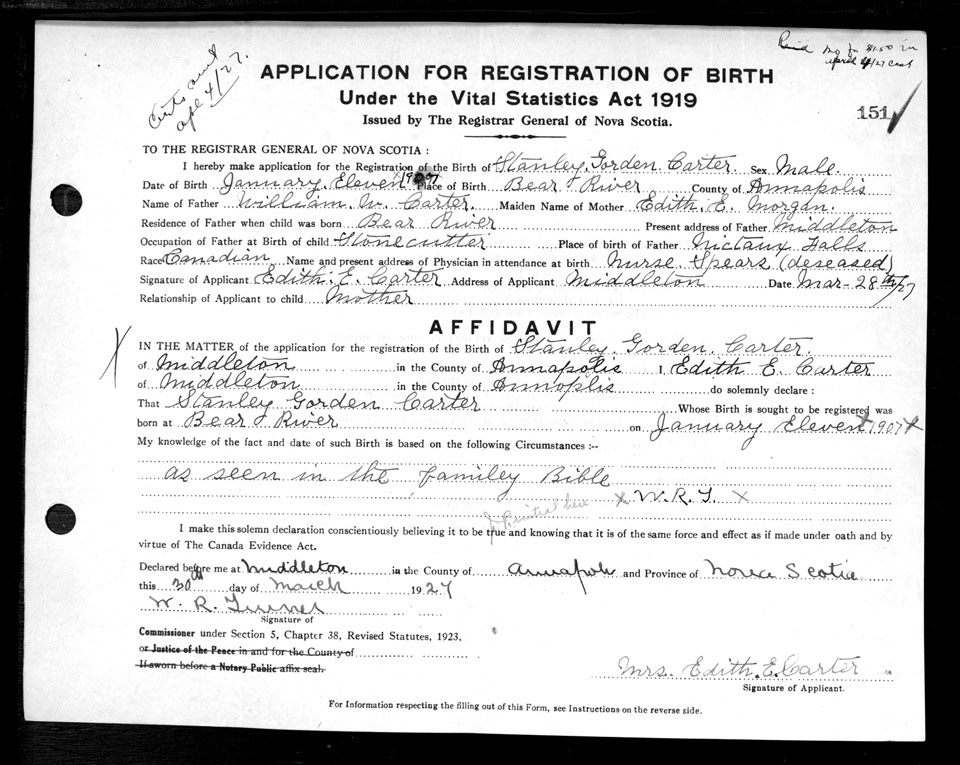 Certs sent
apl 4/27.
Paid no fee $1.50 in
April 4/27 Cash
APPLICATION FOR REGISTRATION OF BIRTH
Under the Vital Statistics Act 1919
151
Issued by The Registrar General of Nova Scotia.
TO THE REGISTRAR GENERAL OF NOVA SCOTIA :
I hereby make application for the Registration of the Birth of Stanley Gorden Carter Sex Male.
Date of Birth January Eleven x 1907 Place of Birth Bear River County of Annapolis
Name of Father William W. Carter. Maiden Name of Mother Edith E. Morgan.
Residence of Father when child was born Bear River Present address of Father Middleton
Occupation of Father at Birth of child Stonecutter Place of birth of Father Nictaux Falls
Race Canadian Name and present address of Physician in attendance at birth Nurse Spears (deseased)
Signature of Applicant Edith E. Carter Address of Applicant Middleton Date Mar - 28th/27
Relationship of Applicant to child Mother
AFFIDAVIT
X IN THE MATTER of the application for the registration of the Birth of Stanley Gorden Carter.
of Middleton in the County of Annapolis I, Edith E. Carter
of Middleton in the County of Annoplis do solemnly declare :
That Stanley Gorden Carter Whose Birth is sought to be registered was
born at Bear River on January Eleven x 1907 x
My knowledge of the fact and date of such Birth is based on the following Circumstances :--
as seen in the familey Bible
x W. R. T. x
J.P. initial here
I make this solemn declaration conscientiously believing it to be true and knowing that it is of the same force and effect as if made under oath and by
virtue of The Canada Evidence Act.
Declared before me at Middleton in the County of Annapolis and Province of Nova Scotia
this 30th day of March 1927
W. R. Turner
Signature of
Commissioner under Section 5, Chapter 38, Revised Statutes, 1923,
or Justice of the Peace in and for the County of
If sworn before a Notary Public affix seal.
Mrs. Edith E. Carter
Signature of Applicant.
For Information respecting the filling out of this Form, see Instructions on the reverse side.